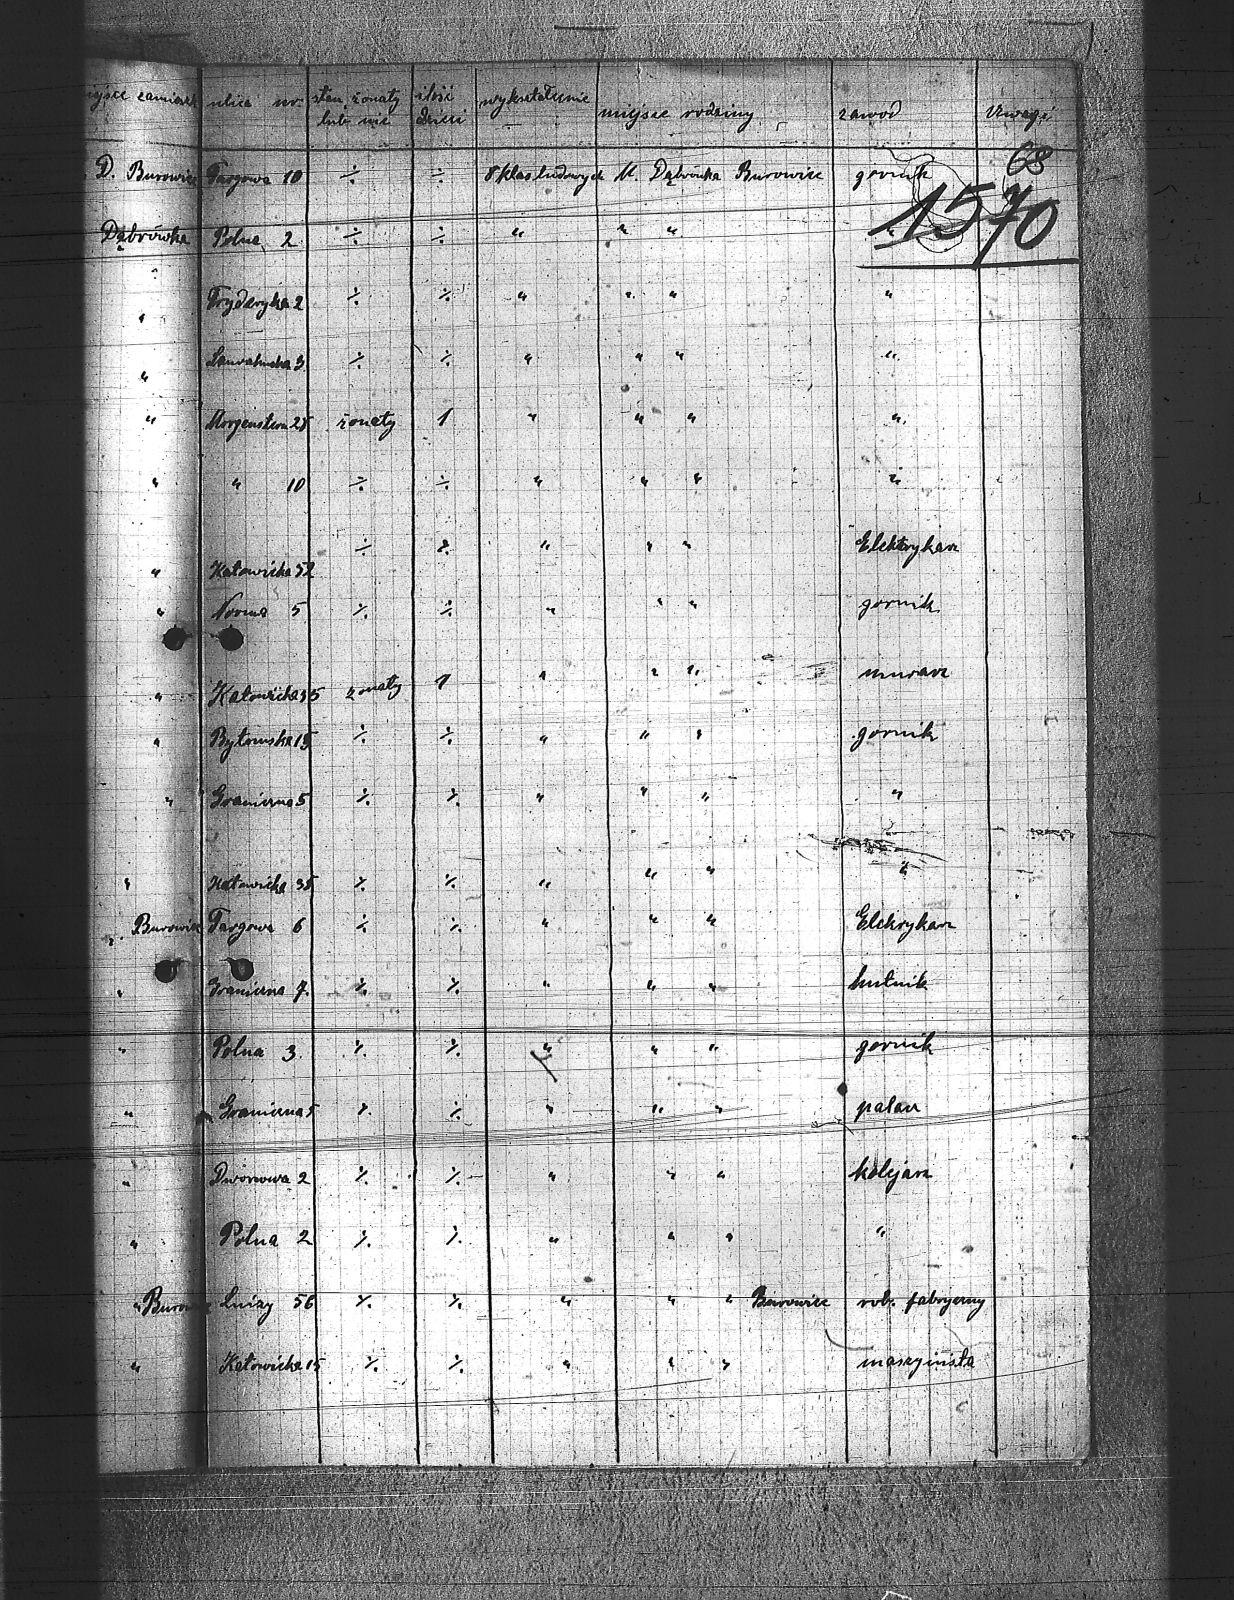 miejsce zamieszk ulica nr. stan, żonaty lub nie ilość dzieci wykształcenie miejsce rodziny zawód Uwagi
68
D. Burowiec Targowa 10 ÷ ÷ 8 klas ludowych M. Dąbrówka Burowiec gornik
1570
Dąbrówka Polna 2 ÷ ÷ " " " "
" Fryderyka 2 ÷ ÷ " " " "
" Laurahucka 3 ÷ ÷ " " " "
" Morgenstern 28 żonaty 1 " " " "
" " 10 ÷ ÷ " " " "
" Katowicka 52 ÷ ÷ " " " Elektrykarz
" Norma 5 ÷ ÷ " " " gornik
" Katowicka 35 żonaty 1 " " " murarz
" Bytomska 15 ÷ ÷ " " " gornik
" Graniczna 5 ÷ ÷ " " " "
" Katowicka 35 ÷ ÷ " " " "
" Burowiec Targowa 6 ÷ ÷ " " " Elekrykarz
" Graniczna 7 ÷ ÷ " " " hutnik
" Polna 3 ÷ ÷ " " " gornik
" Graniczna 5 ÷ ÷ " " " palarz
" Dworcowa 2 ÷ ÷ " " " kolejarz
" Polna 2 ÷ ÷ " " " "
" Burowiec Luizy 56 ÷ ÷ " " " Burowiec rob. fabryczny
" Katowicka 15 ÷ ÷ " " " maszyinsta